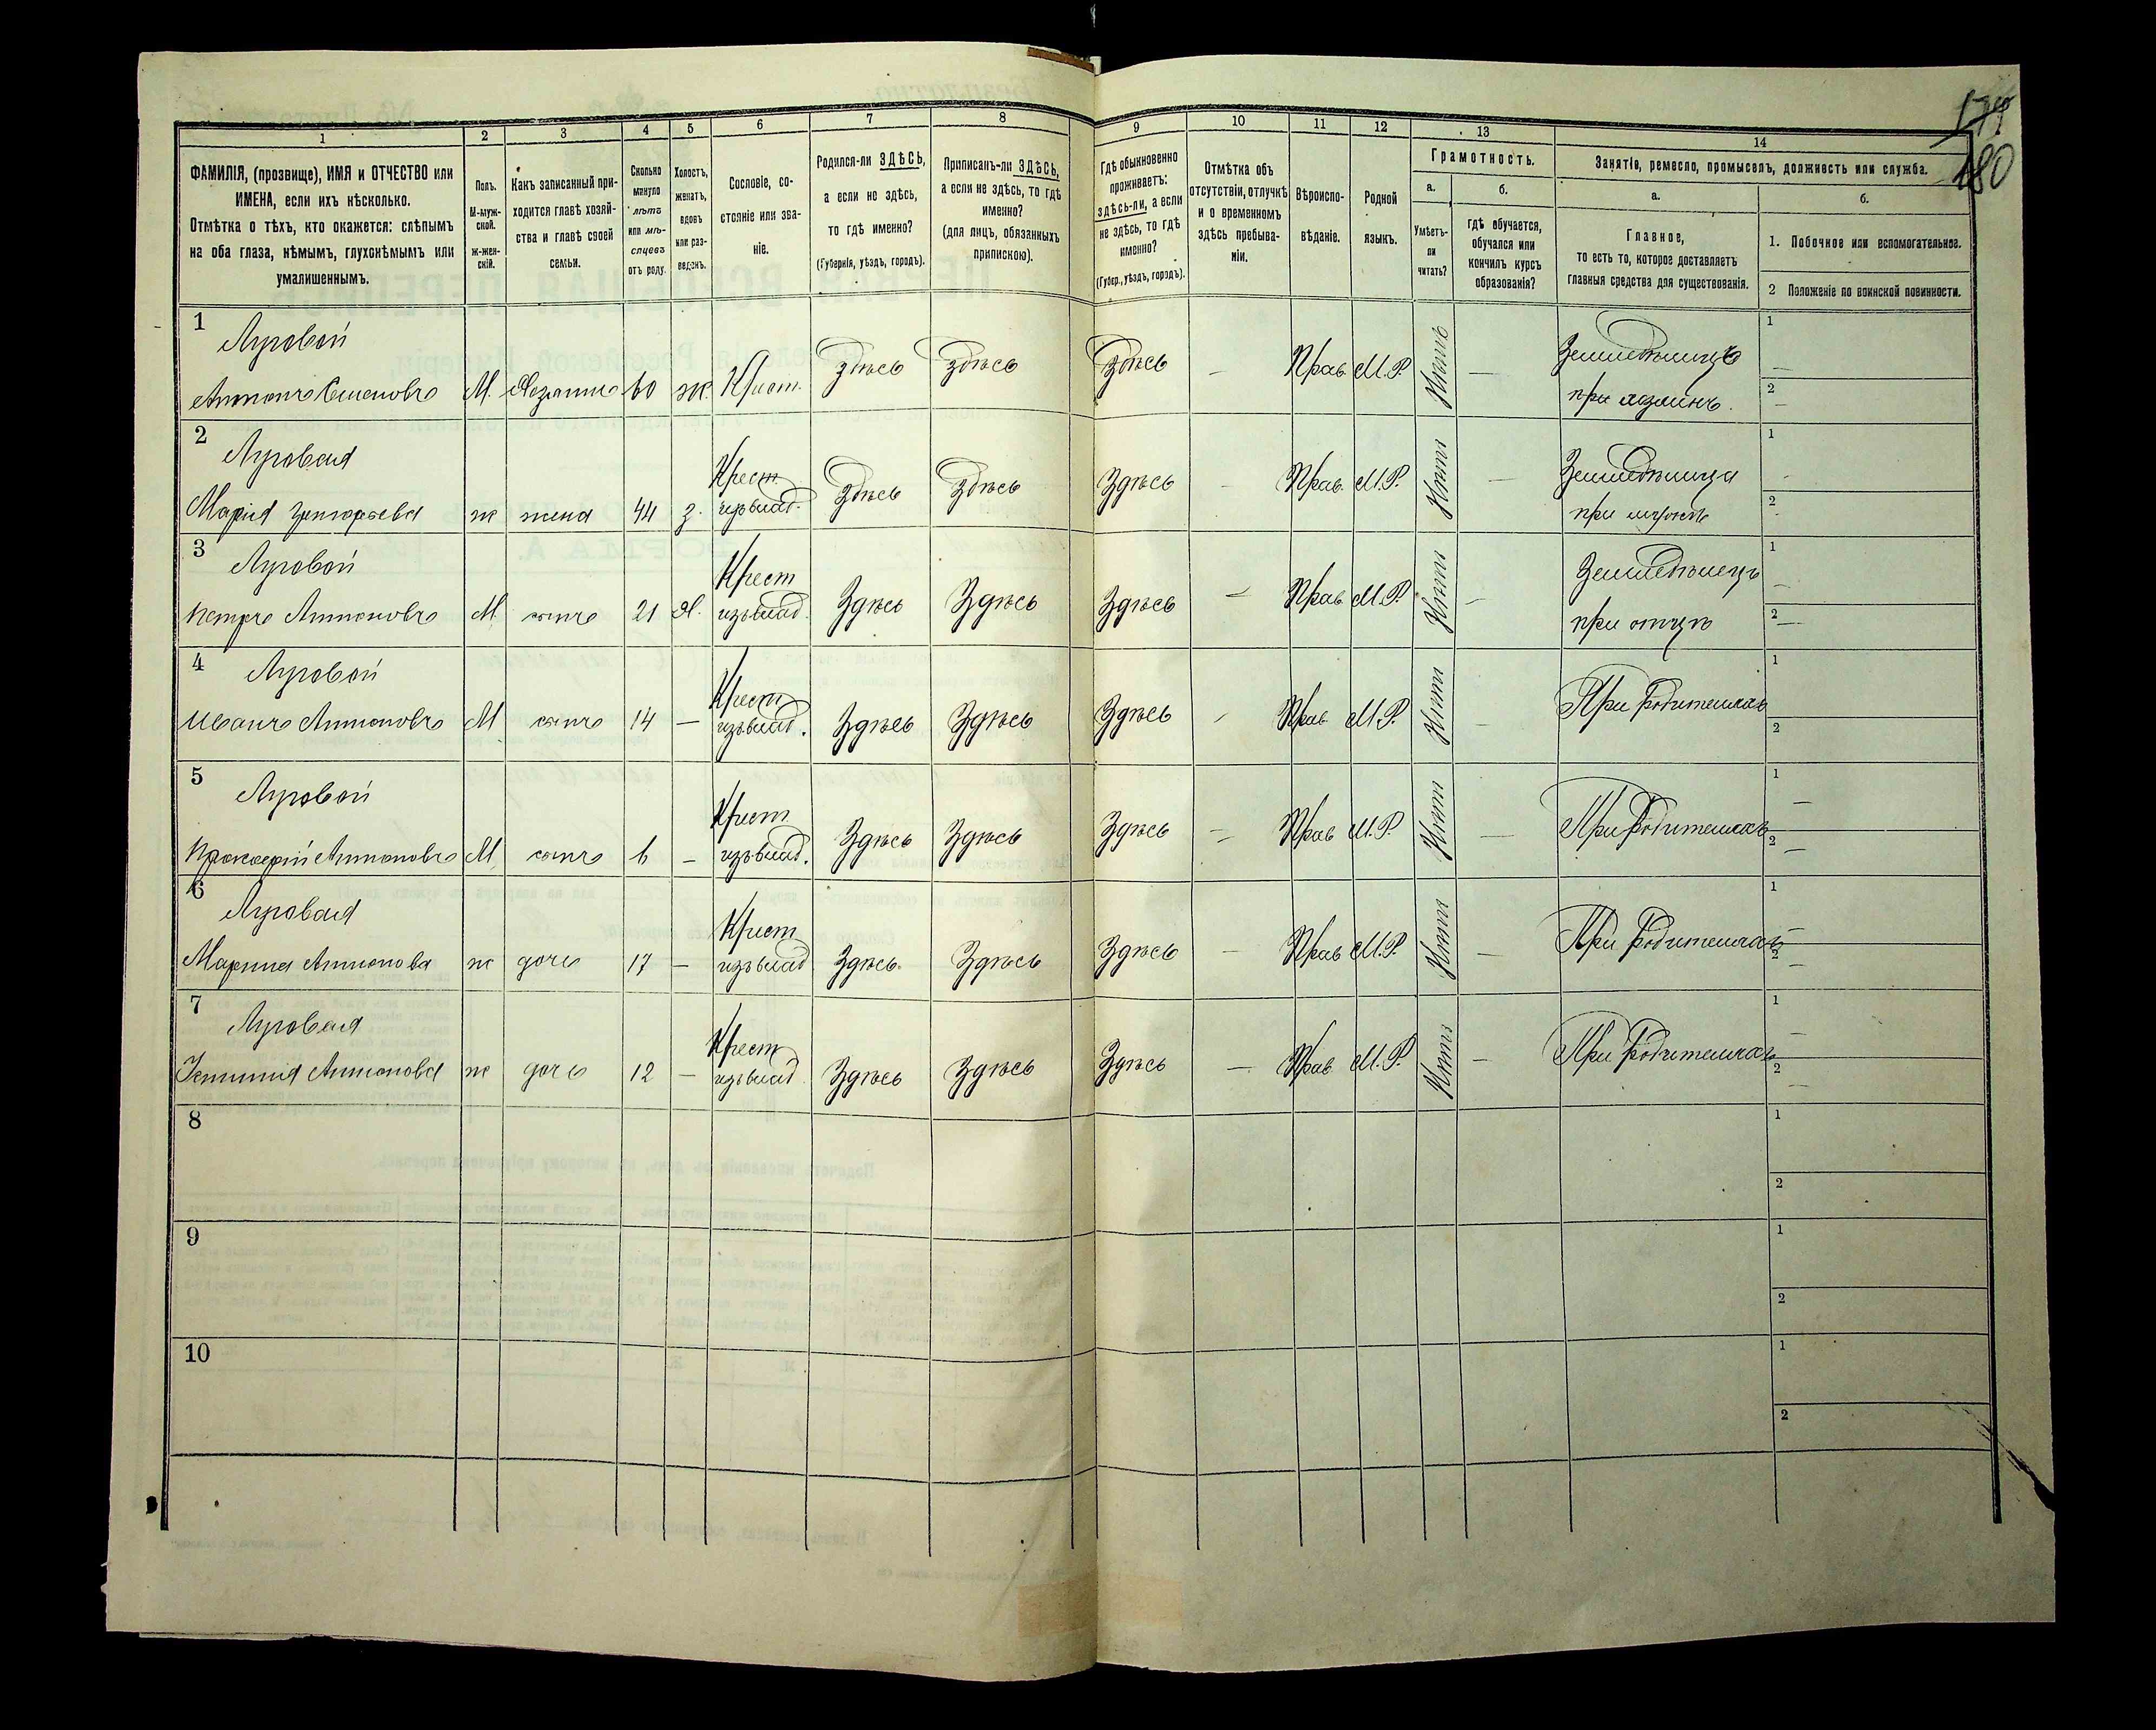 179
180
1
2
3
4
5
6
7
8
9
10
11
12
13
14
ФАМИЛІЯ, (прозвище), ИМЯ и ОТЧЕСТВО или
ИМЕНА, если ихъ нѣсколько.
Отмѣтка о тѣхъ, кто окажется: слѣпымъ
на оба глаза, нѣмымъ, глухонѣмымъ или
умалишеннымъ.
Полъ.
М-муж-
ской.
ж-жен-
скій.
Какъ записанный при-
ходится главѣ хозяй-
ства и главѣ своей
семьи.
Сколько
минуло
лѣтъ
или мѣ-
сяцевъ
отъ роду.
Холостъ,
женатъ,
вдовъ
или раз-
веденъ.
Сословіе, со-
стояніе или зва-
ніе.
Родился-ли ЗДѢСЬ,
а если не здѣсь,
то гдѣ именно?
(Губернія, уѣздъ, городъ).
Приписанъ-ли ЗДѢСЬ,
а если не здѣсь, то гдѣ
именно?
(для лицъ, обязанныхъ
припискою).
Гдѣ обыкновенно
проживаетъ:
здѣсь-ли, а если
не здѣсь, то гдѣ
именно?
(Губер., уѣздъ, городъ).
Отмѣтка объ
отсутствіи, отлучкѣ
и о временномъ
здѣсь пребыва-
ніи.
Вѣроиспо-
вѣданіе.
Родной
языкъ.
Грамотность.
а.
Умѣетъ-
ли
читать?
б.
гдѣ обучается,
обучался или
кончилъ курсъ
образованія?
Занятіе, ремесло, промыселъ, должность или служба.
а.
Главное,
то есть то, которое доставляетъ
главныя средства для существованія.
б.
1. Побочное или вспомогательное.
2 Положеніе по воинской повинности.
1
Луговой
Антонъ Семеновъ М. Хозяинъ 60 ж. Крест. здѣсь здѣсь здѣсь — Прав М.Р. Нѣтъ —
при хозяинѣ.
1 —
2 —
2
Луговая
Марія Григорьева ж жена 44 з. Крест
изъ влад. здѣсь здѣсь Здѣсь — Прав. М.Р. Нѣтъ —
при мужѣ
1 -
2 -
3
Луговой
Петръ Антоновъ М. сынъ 21 Х. Крест
изъ влад. Здѣсь Здѣсь Здѣсь — Прав М.Р. Нѣтъ — Земледѣлецъ
при отцѣ
1 —
2 —
4
Луговой
Иванъ Антоновъ М сынъ 14 — Крест
изъ влад. Здѣсь Здѣсь Здѣсь - Прав М.Р. Нѣтъ — При родителяхъ
1
2
5
Луговой
Прокофій Антоновъ М. сынъ 6 — Крест.
изъ влад. Здѣсь Здѣсь Здѣсь — Прав М.Р. Нѣтъ — При родителяхъ
1 —
2 —
6
Луговая
Марина Антонова ж дочь 17 — Крест
изъ влад Здѣсь Здѣсь Здѣсь — Прав М.Р. Нѣтъ — При родителяхъ
1 —
2 —
7
Луговая
Антонова ж дочь 12 — Крест
изъ влад. Здѣсь Здѣсь Здѣсь — Прав. М.Р. Нѣтъ — При родителяхъ
1 —
2 —
8
1
2
9
1
2
10
1
2